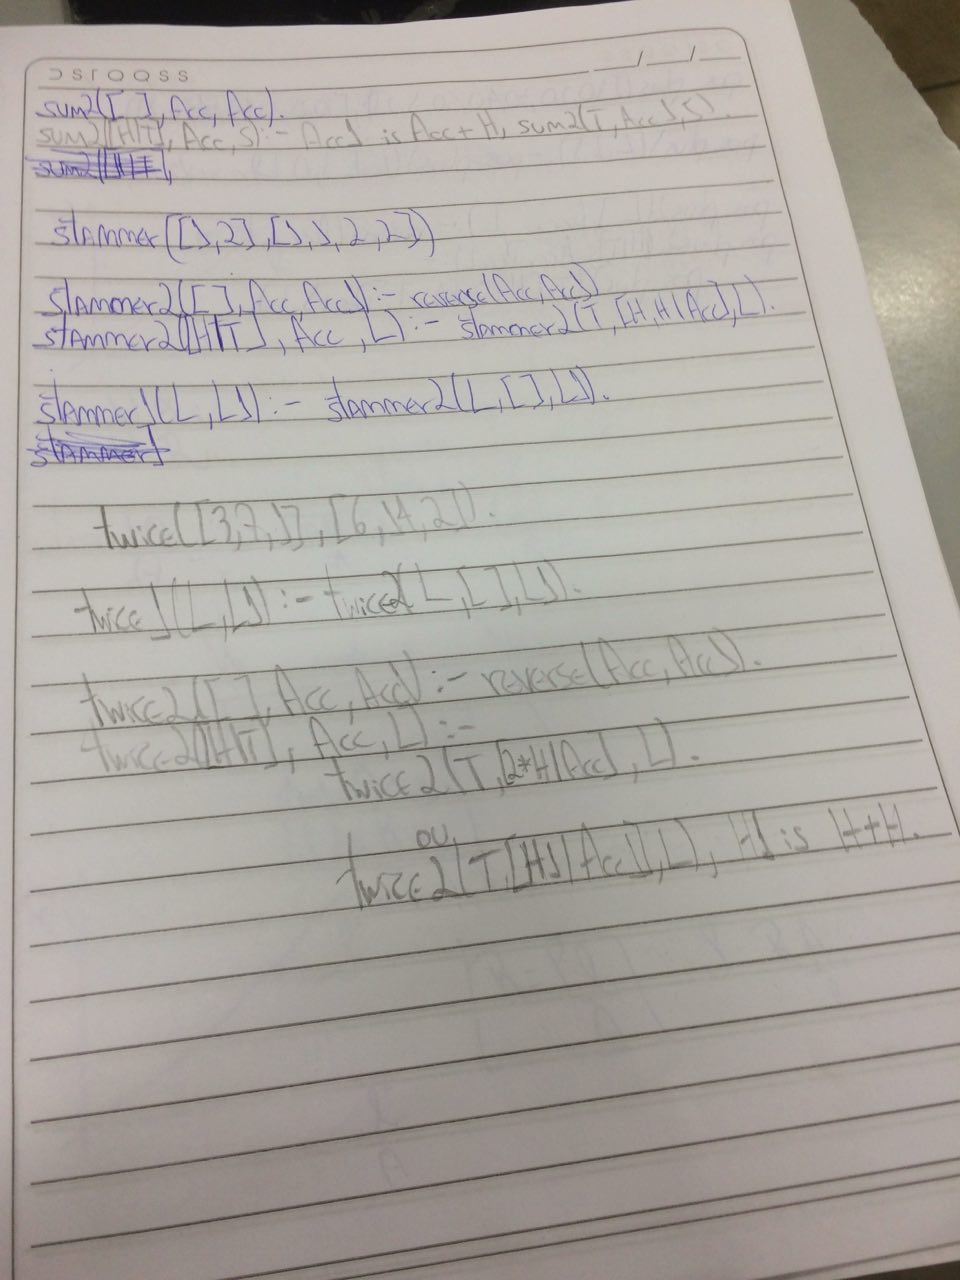 D S T Q Q S S
__/__/__
sum2([ ], Acc, Acc).
sum2([H|T], Acc, S) :- Acc1 is Acc + H, sum2(T, Acc1, S).
stammer([1,2],[1,1,2,2])
stammer2([ ], Acc, Acc1) :- reverse(Acc, Acc1)
stammer2([H|T], Acc, L) :- stammer2(T, [H,H|Acc], L).
stammer1(L, L1) :- stammer2(L,[ ],L1).
twice([3,7,1],[6,14,2]).
twice1(L, L1) :- twice2(L,[ ],L1).
twice2([ ], Acc, Acc1) :- reverse(Acc, Acc1).
twice2([H|T], Acc, L) :-
twice2(T,[2*H|Acc], L).
ou
twice2(T,[H1|Acc],L), H1 is H+H.